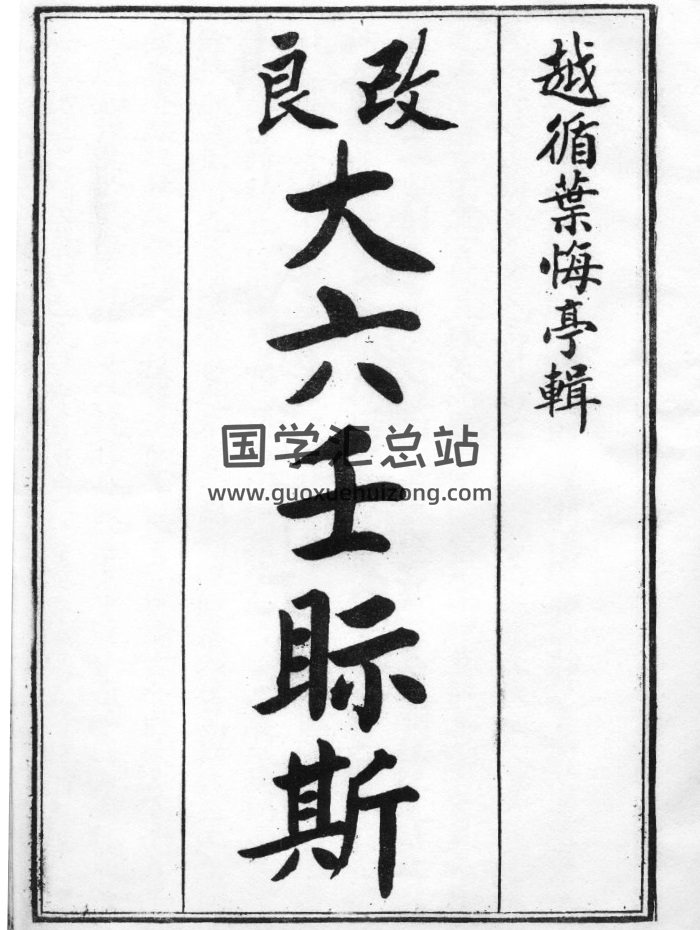 越循葉悔亭輯
改良
大六壬眎斯
国学汇总站
www.guoxuehuizong.com